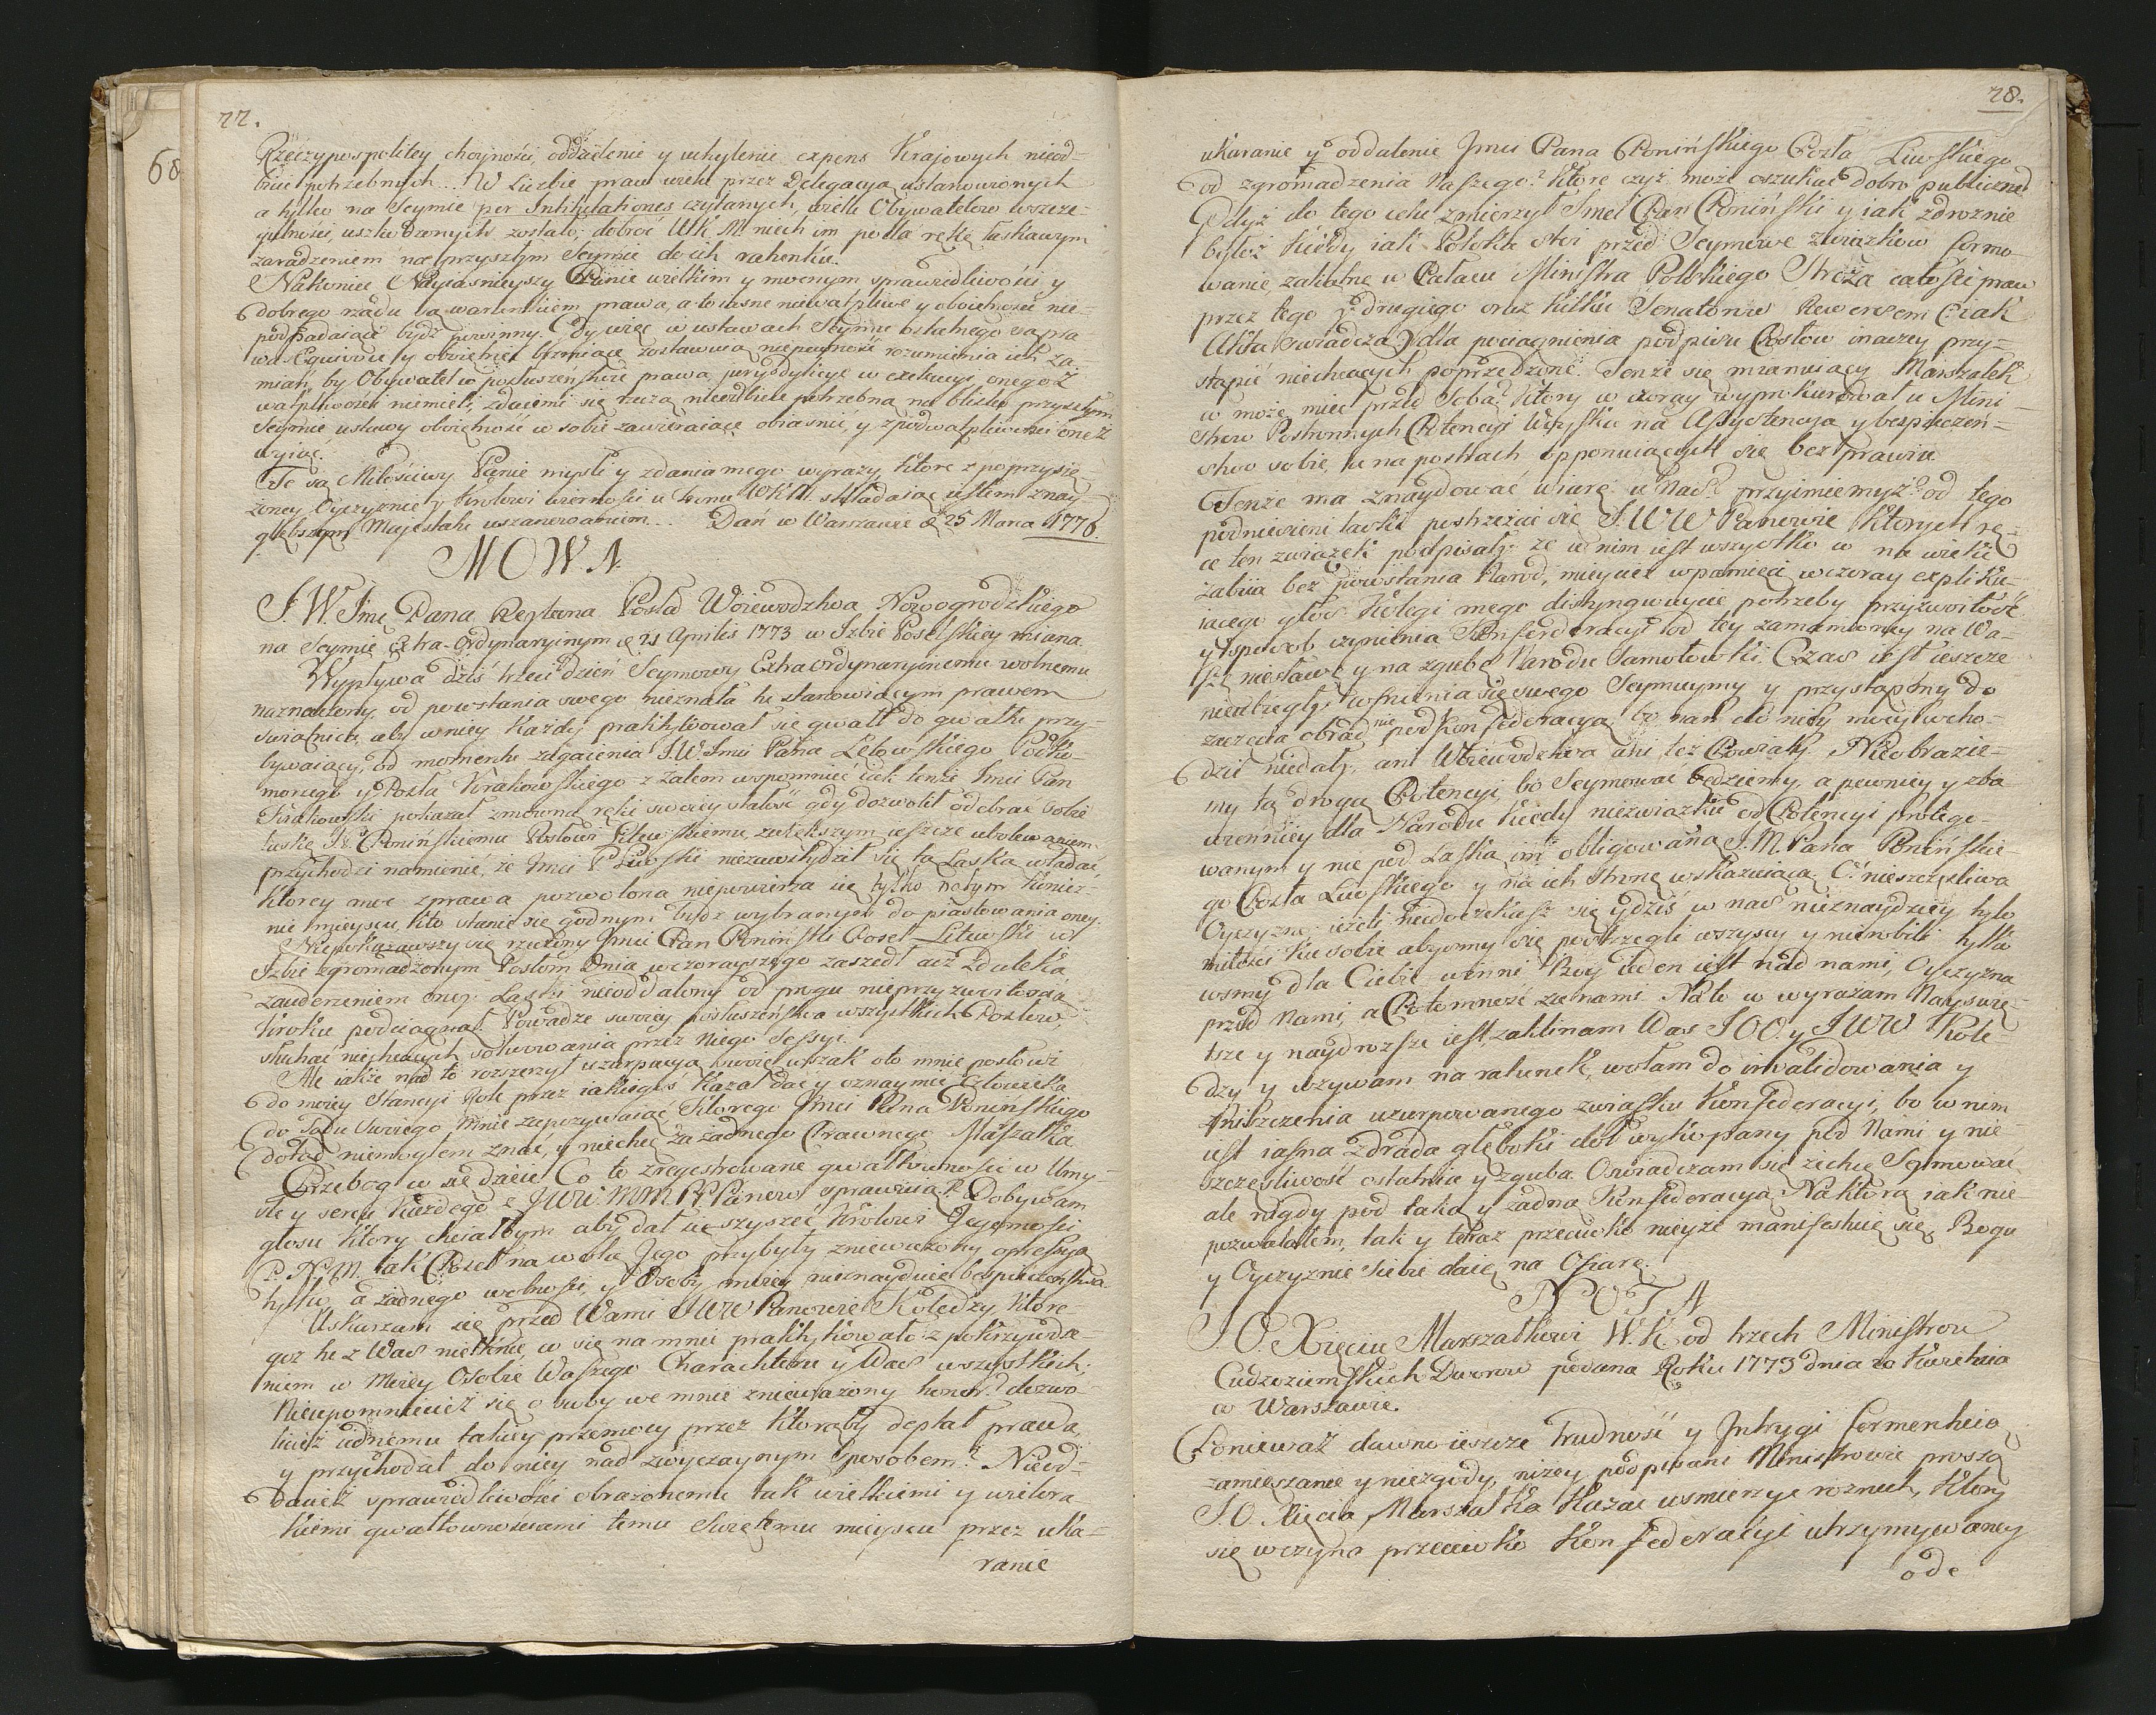 77.
68
Rzeczypospolitey choyności, oddzielenie y uchylenie expens Krajowych nieod=
bicie potrzebnych... W Liczbie praw wiele przez Delegacyą ustanowionych
a tylko na Seymie per Intitulationes czytanych, wielu Obywatelow wszcze=
gulności, uszkodzonych zostało; dobroć WK M niech im poda rękę łaskawym
zaradzeniem na przyszłym Seymie do ich ratunku.
Nakoniec Nayiaśnieyszy Panie wielkim y mocnym sprawiedliwości y
dobrego rządu są warunkiem prawa, a te iasne niewątpliwe y oboiętności nie=
podpadaiące bydź powinny. Gdy więc w ustawach Seymu ostatnego są pra=
wa Equivoce y oboiętnie brzmiące zostawuią niepewność rozumienia ich za=
miast, by Obywatel w posłuszeństwie prawa, jurysdykcye w exekucyi onegoż
wątpliwości niemieli, zdaiemi się rzeczą nieodbicie potrzebną na blisko przyszłym
Seymie ustawy oboiętność w sobie zawieraiące obiaśnić, y zpodwątpliwości oneż
wyiąć.
Te są Miłościwy Panie myśli y zdania mego wyrazy, które z poprzysię=
żoney Oyczyznie y Krolowi wierności u tronu WKM. składaiąc iestem z nay=
głębszym Majestatu uszanowaniem... Dań w Warszawie d 25 Marca 1776.
MOWA
J. W. Jmc Pana Reytana Posła Woiewodztwa Nowogrodzkiego
na Seymie Extra-Ordynaryinym d 21 Aprilis 1773 w Izbie Poselskiey miana.
Wypływa dziś trzeci dzień Seymowy Extraordynaryinemu wolnemu
naznaczony, od powstania swego nieznała ta stanowiącym prawem
swiątnica, aby wniey Każdy praktykował się gwałt do gwałtu przy=
bywaiący, od momentu zagaienia J.W. Jmci Pana Łętowskiego Podko=
morzego y Posła Krakowskiego z żalem wspomnieć iak tenże Jmci Pan
Krakowski pokazał zmowną ręki swoiey stałość gdy dozwolił odebrać sobie
laskę Jr. Ponińskiemu Posłowi Liwskiemu, zwiększym ieszcze ubolewaniem
przychodzi namienić, że Jmci P Liwski niezawstydził się tą Laską władać,
Ktorey moc z prawa pozwolona niepowierza się tylko natym Konier=
nie mieyscu, kto stanie się godnym bydź wybranym do piastowania oney.
Niepokazawszy się rzeczony Jmci Pan Poniński Poseł Liwski w
Izbie zgromadzonym Posłom Dnia wczorayszego zaszedł aż zdaleka
zauderzeniem oney Laski nieoddalony od progu nieprzyzwoitością
kroku podciągnął Powadze swoiey posłuszeństwa wszystkich Posłow,
słuchać niechcących solwowania przez niego Sessyi.
Ale iakże nad to rozszerzył uzurpacyą swoię wszak oto mnie posłowi
do moiey Stancyi Rote przez iakiegoś Kazał dać y oznaymić człowieka
do Sądu Swoiego Mnie zapozywaiąc Ktorego Jmci Pana Ponińskiego
dotąd niemogłem znać, y niechcę za żadnego Prawnego Marszałka
Przebog co się dzieie Co to zregestrowane gwałtowności w Umy=
śle y sercu Każdego z JWW. MM PP Panow sprawuią? Dobywam
głosu Ktory chciałbym aby dał się szyszeć Krolowi Jegomości
P. N. M. iak Poseł na wolę Jego przybyły znieważony oppressyą
tylko, a żadnego wolności, y Osoby moiey nieznayduię bespieczeństwa
Uskarzam się przed Wami JWW Panowie Koledzy, Ktore=
goż to z Was nietknie co się na mnie praktykowało z pokrzywdze=
niem w Moiey Osobie Waszego Charakteru y Was wszystkich;
Nieupomnicież się o buby we mnie znieważony honor? dozwo=
licież iednemu takiey przemocy przez Ktorąby deptał prawa,
y przychodził do niey nad zwyczaynym sposobem? Nieod=
dacież sprawiedliwości obrażonemu tak wielkiemi y wielora=
kiemi gwałtownościami temu Świętemu mieyscu przez uka=
ranie
78.
ukaranie y oddalenie Jmci Pana Ponińskiego Posła Liwskiego
od zgromadzenia Naszego? Które czyż może oszukać dobro publiczne
Gdyż do tego celu zmierzył Jmc Pan Poniński y iak zdrożnie
byłoż kiedy iak Polska stoi przed Seymowe związkow formo=
wanie, zakątne w Pałacu Ministra Polskiego Stroża całości praw
przez tego y drugiego oraz kilku Senatorow Rewersem (iak
Akta swiadczą) dla pociągnienia podpisu Posłow inaczey przy=
stąpić niechcących poprzedzone. Tenże się mianuiący Marszałek
co może mieć przed Sobą? Który wczoray wyprokurował u Mini=
strow Postronnych Potencyi Woysku na Assystencyą y bespieczeń=
stwo sobie, a na postrach opponuiących się bezprawiu
Tenże ma znaydować wiarę u Nas? przyimiemyż? od tego
podniesieni laski postrzeżcie się J. WW Panowie Ktorych rę=
ce ten związek podpisały: że w nim iest wszystko co na wieki
zabiia bez powstania Narod, mieycie wpamięci wczoray expliku=
iącego głos Kolegi mego dystyngwuycie potrzeby przyzwoitość
y sposob czynienia Konfederacyi od tey zamamioney na Wa=
szę niesławę y na zgubę Narodu Samołowki. Czas iest ieszcze
nieubiegły cofnienia się swego Seymuymy y przystąpmy do
zaczęcia obrad nie pod Konfederacyą, bo nam do niey mocy wcho=
dzić niedały, ani Woiewodztwa ani też Powiaty. Nieobrazie=
my tą drogą Potencyi, bo Seymować będziemy, a pewniey y zba=
wienniey dla Narodu Kiedy niezwiązku od Potencyi protego=
wanym y nie pod Laską im obligowaną J.M. Pana Ponińskie=
go Posła Liwskiego y na ich stronę wskazuiącą. O! nieszczęśliwa
Oyczyzno ieżeli niedoczekasz się ydziś w nas nieznaydziey tyle
miłości ku sobie abyśmy się postrzegli wszyscy y nierobili tylko
cosmy dla Ciebie winni Bog ieden iest nad nami, Oyczyzna
przed Nami, a Potomność za nami. Na to co wyrażam Nayswię=
tsze y naydroższe iest, zaklinam Was JOO. y JWW Kole=
dzy y wzywam na ratunek, wołam do inwalidowania y
zniszczenia uzurpowanego związku Konfederacyi, bo w nim
iest iasna zdrada głęboki doł wykopany pod Nami y nie=
szczęśliwość ostatnia y zguba. Oświadczam się żechcę Seymować
ale nigdy pod taką y żadną Konfederacyą Naktorą iak nie
pozwalałem, tak y teraz przeciwko nieyże manifestuię się, Bogu
y Oyczyznie Siebie daię na Ofiarę.
NOTA
J. O. Xięciu Marszałkowi W. K. od trzech Ministrow
Cudzoziemskich Dworow podana Roku 1773 dnia 20 Kwietnia
w Warszawie.
Ponieważ dawno ieszcze Trudność y Intrygi fermentuią
zamieszanie y niezgody, niżey podpisani Ministrowie proszą
J. O. Xięcia Marszałka Kazać usmierzyc rozruch, Ktory
się wszczyna przeciwko Konfederacyi utrzymywaney
ode